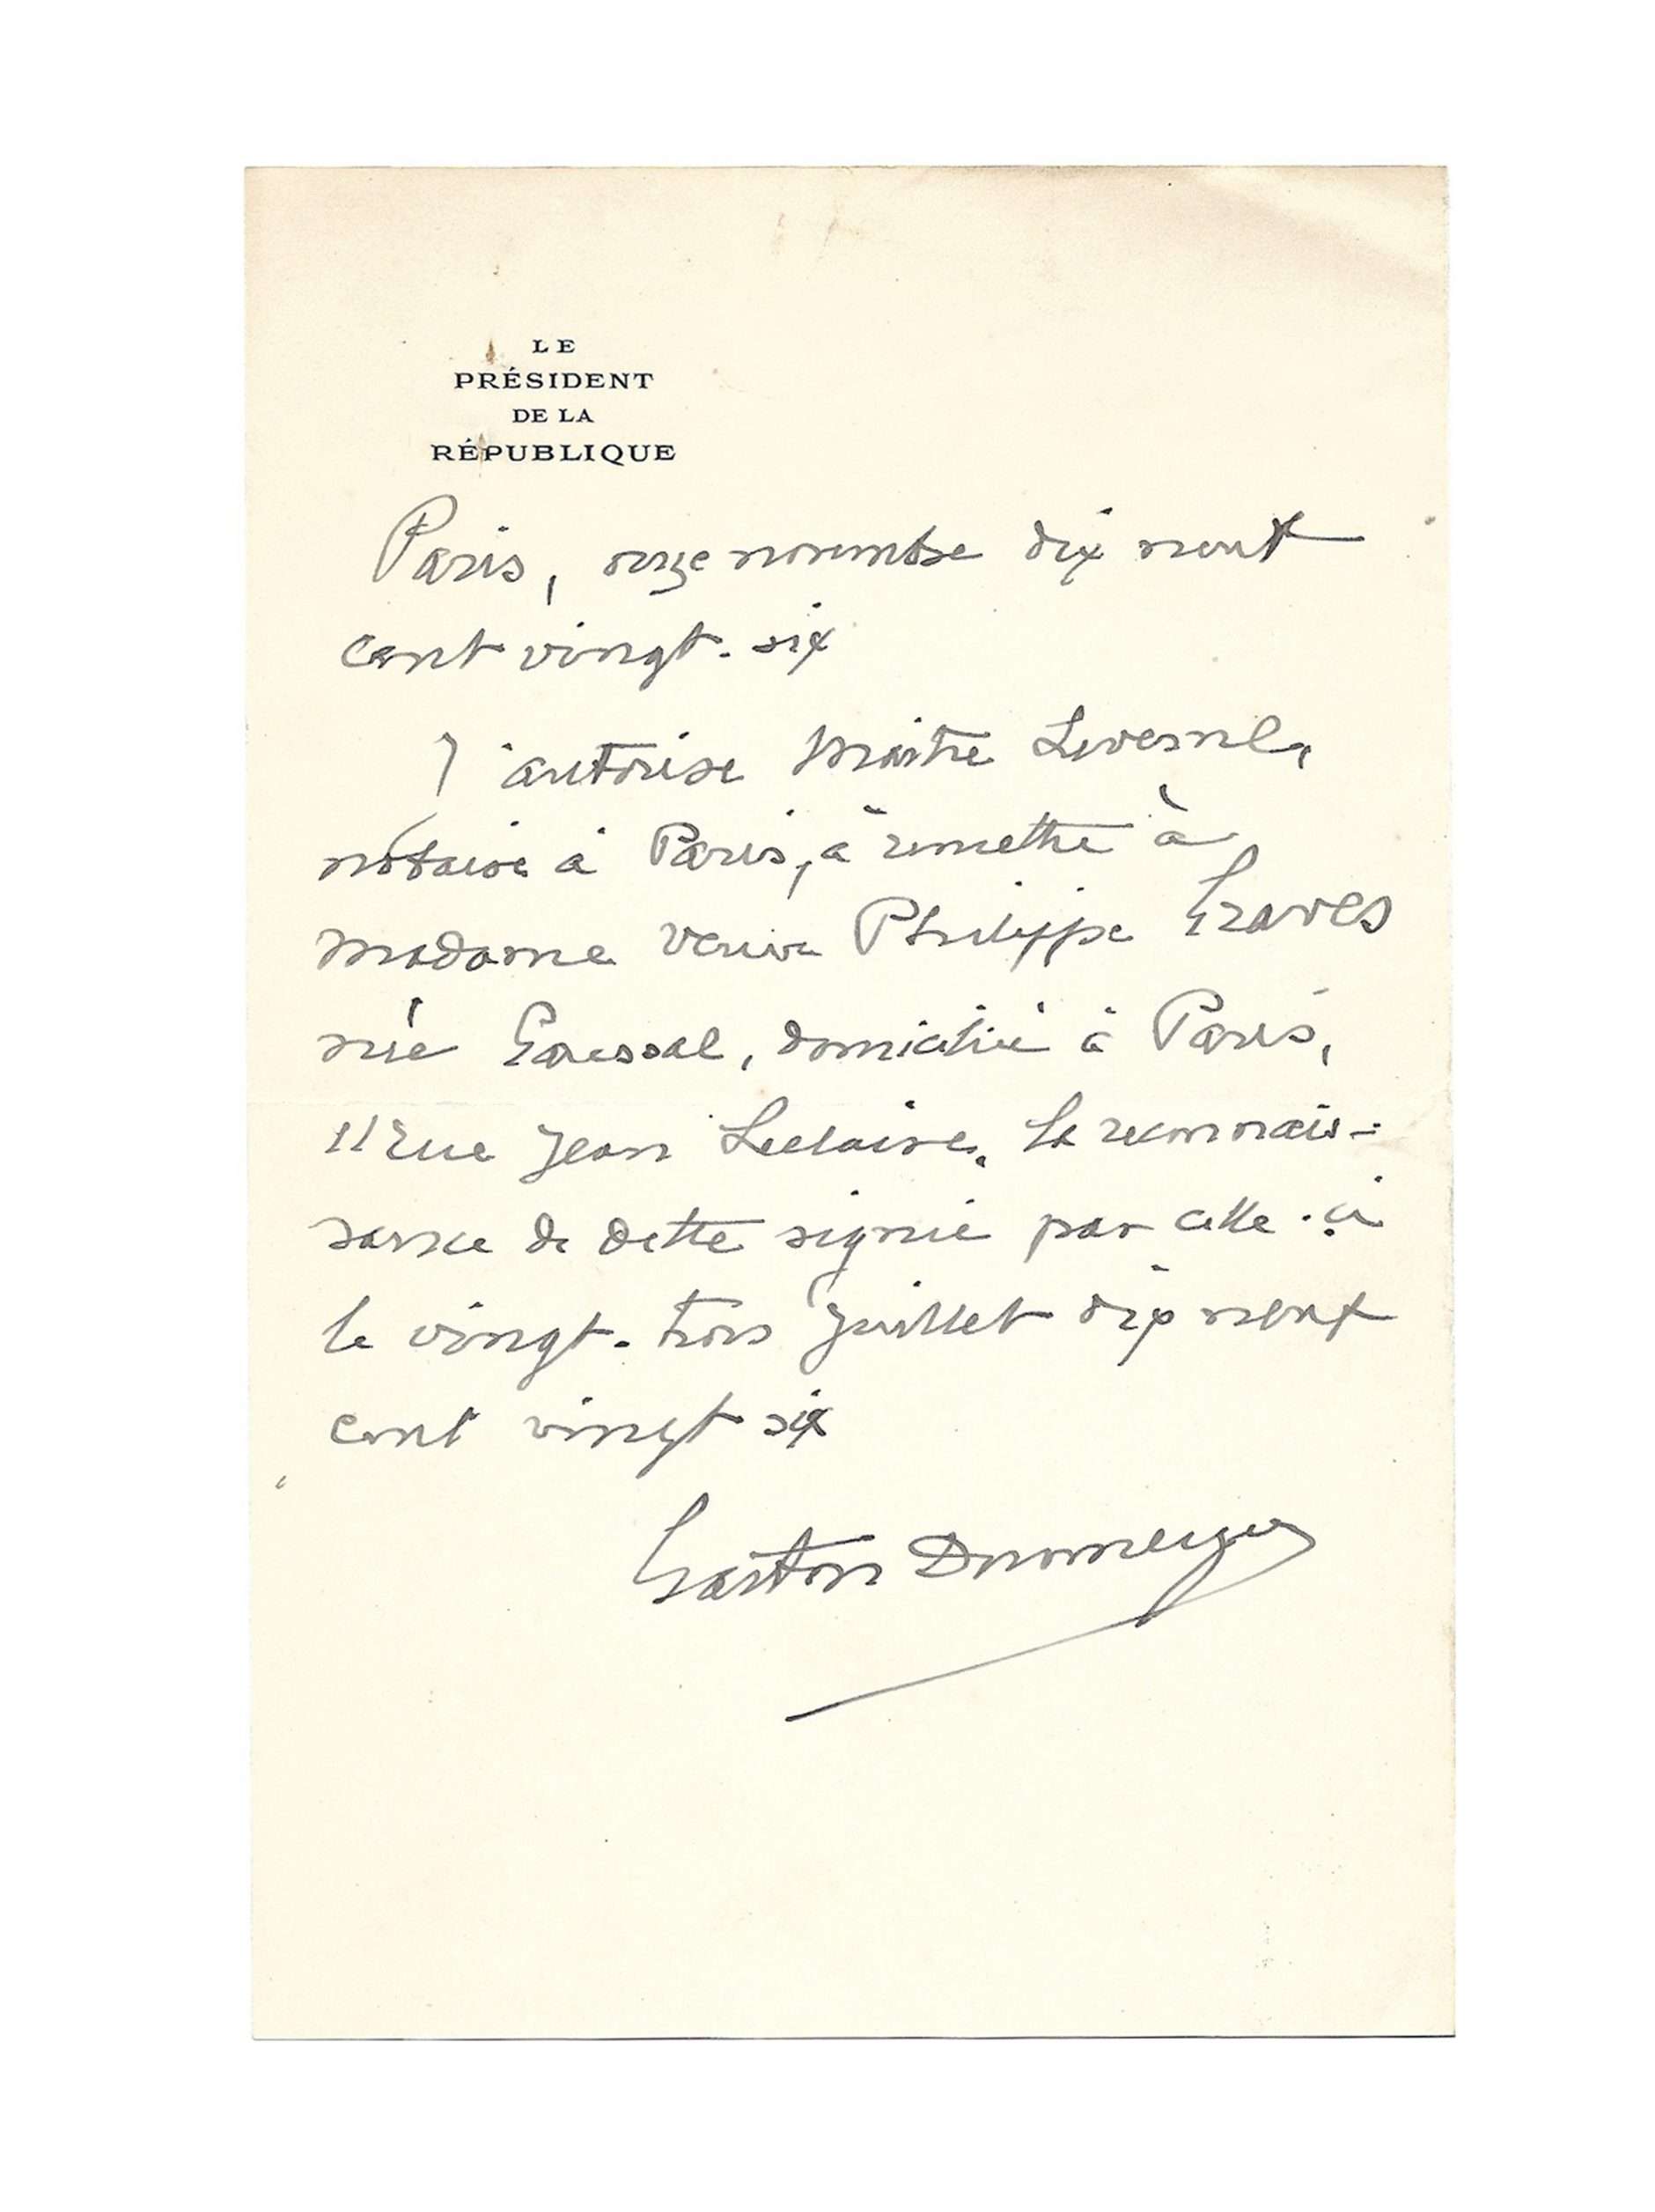 LE
PRÉSIDENT
DE LA
RÉPUBLIQUE
Paris, onze novembre dix neuf
cent vingt-six
J'autorise Maître
notaire à Paris, à remettre à
Madame veuve Philippe Graves
née domiciliée à Paris,
11 rue Jean Leclaire, la reconnais-
sance de dette signée par celle-ci
le vingt-trois juillet dix neuf
cent vingt six
Gaston Doumergue